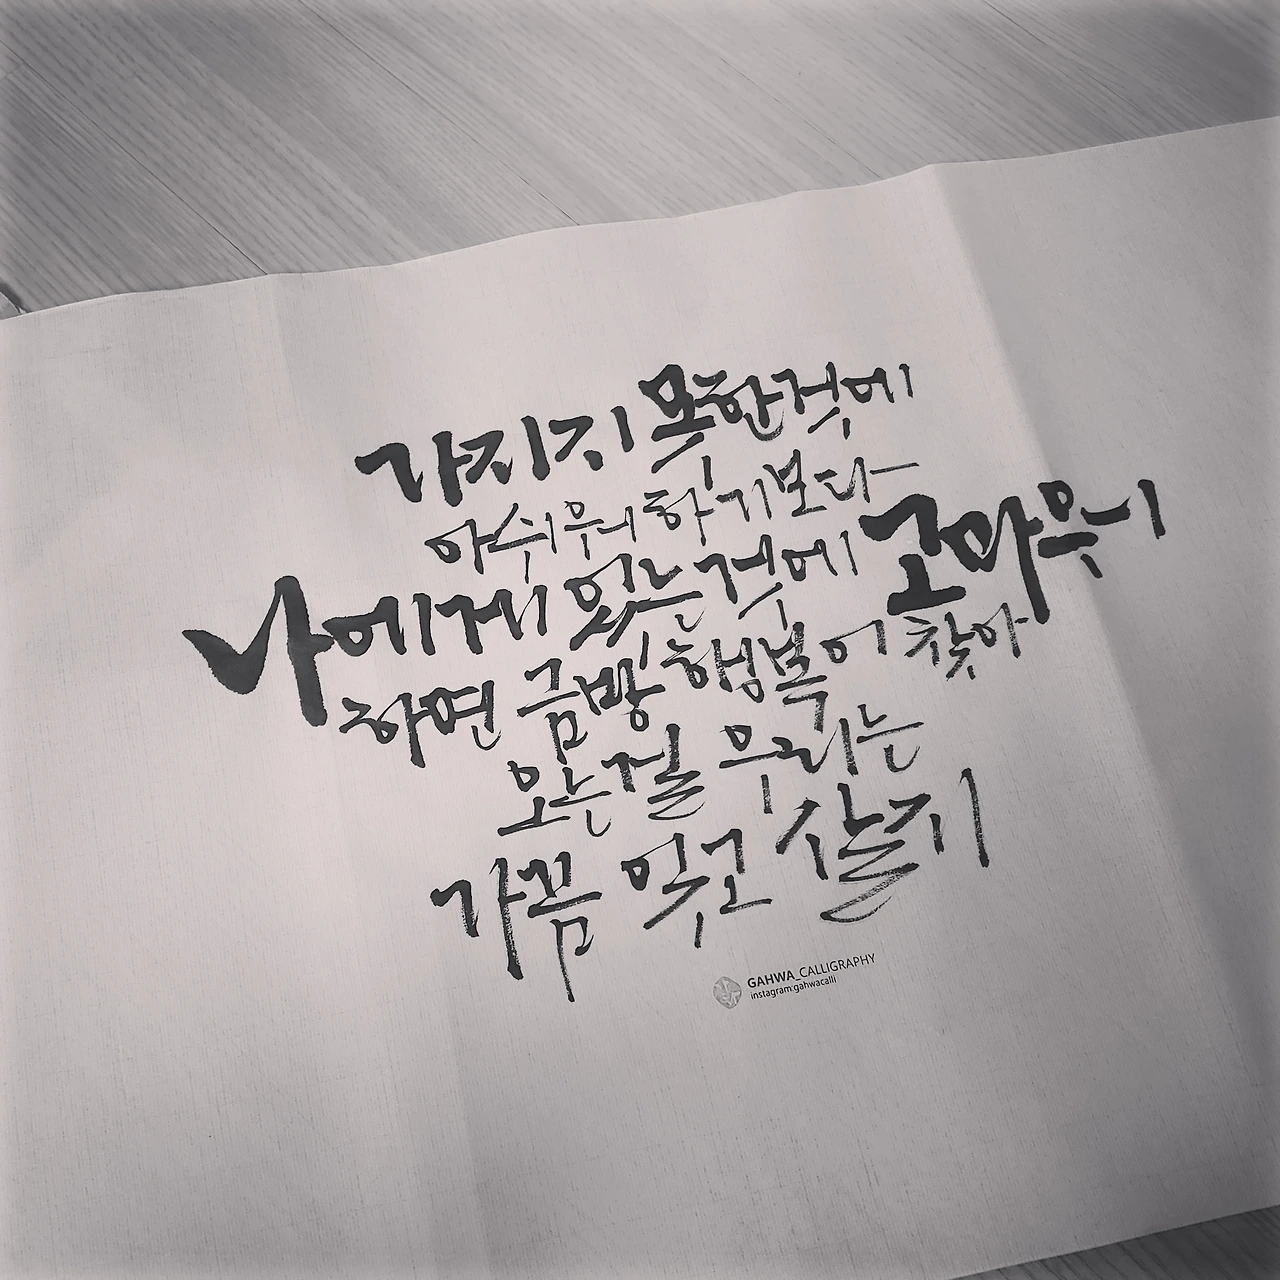 가지지 못한것에
아쉬워하기보다
나에게 있는것에 고마워
하면 금방 행복이 찾아
오는걸 우리는
가끔 잊고 살지
GAHWA_CALLIGRAPHY
instagram:gahwacalli